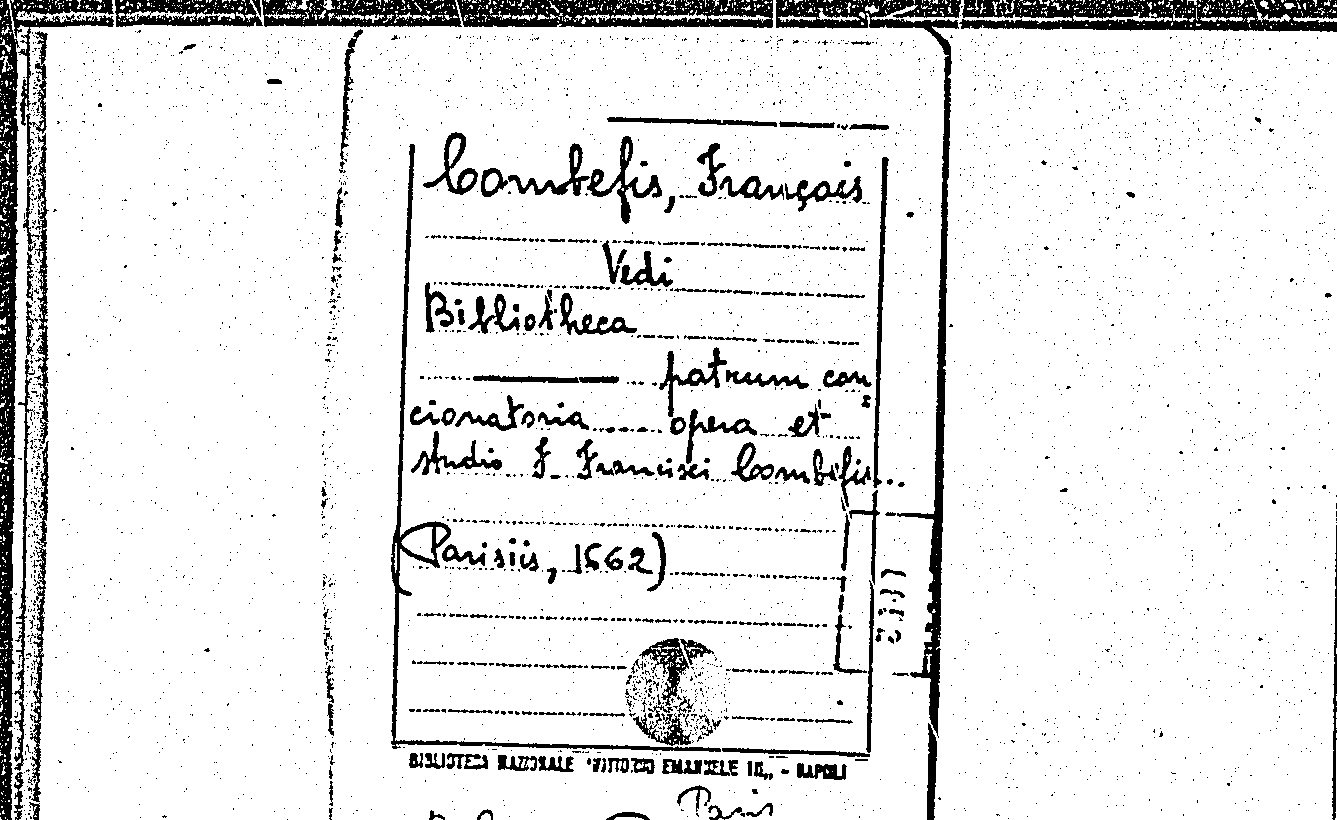 Combefis, François
Vedi
Bibliotheca
——— patrum con
cionatoria .... opera et
studio F. Francisci Combefis...
(Parisiis, 1662)
BIBLIOTECA NAZIONALE "VITTORIO EMANUELE III„ - NAPOLI
Paris